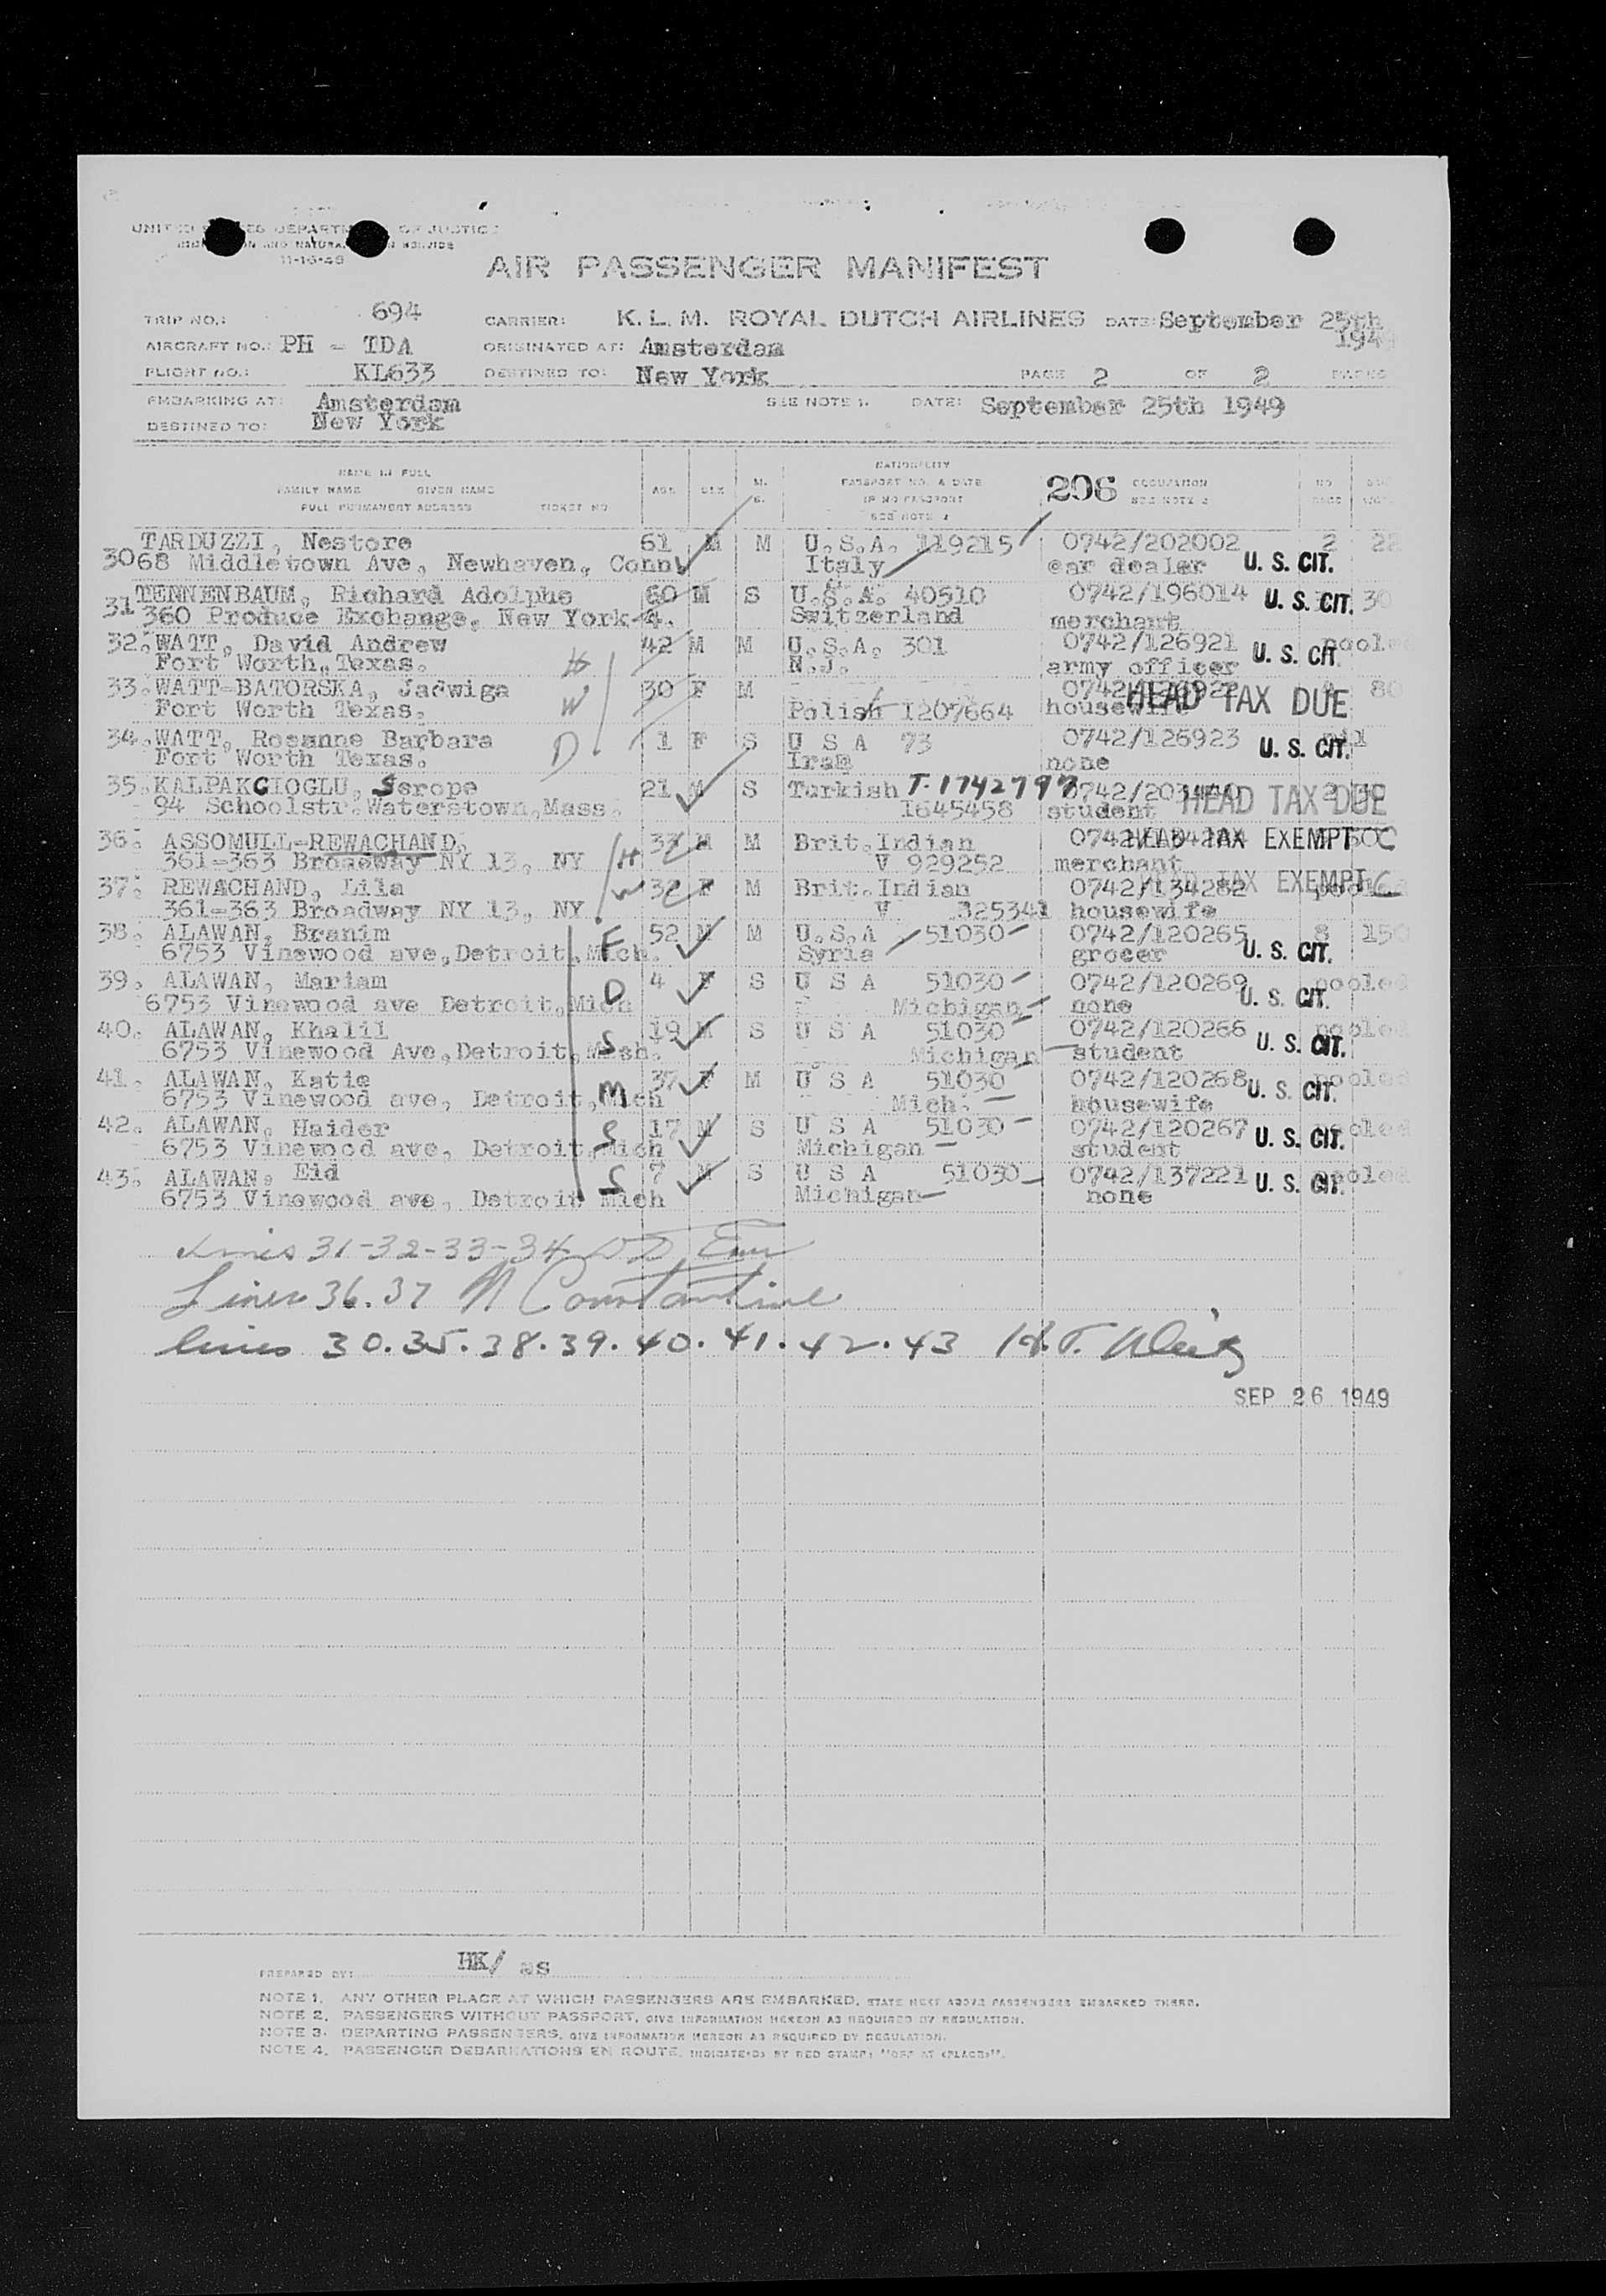 UNITED STATES DEPARTMENT OF JUSTICE
IMMIGRATION AND NATURALIZATION SERVICE
11-16-48
AIR PASSENGER MANIFEST
TRIP NO.: 694 CARRIER: K. L. M. ROYAL DUTCH AIRLINES DATE: September 25th
1949
AIRCRAFT NO.: PH - TDA ORIGINATED AT: Amsterdam
FLIGHT NO.: KL633 DESTINED TO: New York PAGE 2 OF 2 PAGES
EMBARKING AT: Amsterdam SEE NOTE 1. DATE: September 25th 1949
DESTINED TO: New York
NAME IN FULL
FAMILY NAME GIVEN NAME
FULL PERMANENT ADDRESS TICKET NO
AGE SEX M. S.
NATIONALITY
PASSPORT NO. & DATE
IF NO PASSPORT
SEE NOTE 2
206 OCCUPATION
SEE NOTE 2
TARDUZZI, Nestore 61 M M U.S.A. 119215 0742/202002 2 22
3068 Middletown Ave, Newhaven, Conn Italy car dealer U. S. CIT.
TENNENBAUM, Richard Adolphe 60 M S U.S.A. 40510 0742/196014 U. S. CIT. 30
31 360 Produce Exchange, New York 4. Switzerland merchant
32. WATT, David Andrew 42 M M U.S.A. 301 0742/126921 pooled
Fort Worth, Texas. H N.J. army officer U. S. CIT.
33. WATT-BATORSKA, Jadwiga 30 F M 0742/126922 80
Fort Worth Texas. W Polish I207664 housewife HEAD TAX DUE
34. WATT, Rosanne Barbara 1 F S U S A 73 0742/126923 U. S. CIT. nil
Fort Worth Texas. D Iran none
35. KALPAKCIOGLU, Serope 21 M S Turkish T-1742797
94 Schoolstr. Waterstown, Mass. I645458 student HEAD TAX DUE
36. ASSOMULL-REWACHAND, 37 M M Brit.Indian HEAD TAX EXEMPT
361-363 Broadway NY 13, NY H V 929252 merchant
37. REWACHAND, Lila 32 F M Brit.Indian 0742/134282 HEAD TAX EXEMPT
361-363 Broadway NY 13, NY W V 325341 housewife
38. ALAWAN, Branim F 52 M M U.S.A 51030 0742/120265 8 150
6753 Vinewood ave, Detroit, Mich. Syria grocer U. S. CIT.
39. ALAWAN, Mariam D 4 F S U S A 51030 0742/120269 pooled
6753 Vinewood ave Detroit, Mich Michigan none U. S. CIT.
40. ALAWAN, Khalil 19 M S U S A 51030 0742/120266 pooled
6753 Vinewood Ave, Detroit, Mish. S Michigan student U. S. CIT.
41. ALAWAN, Katie 37 F M U S A 51030 0742/120268 pooled
6753 Vinewood ave, Detroit, Mich M Mich. housewife U. S. CIT.
42. ALAWAN, Haider S 17 M S U S A 51030 0742/120267 U. S. CIT. pooled
6753 Vinewood ave, Detroit, Mich Michigan student
43. ALAWAN, Eid S 7 M S U S A 51030 0742/137221 U. S. CIT. pooled
6753 Vinewood ave, Detroit Mich Michigan none
Lines 31-32-33-34
Lines 36.37 N Constantine
lines 30.35.38.39.40.41.42.43 H.T.
SEP 26 1949
PREPARED BY: HK/ as
NOTE 1. ANY OTHER PLACE AT WHICH PASSENGERS ARE EMBARKED, STATE NEXT ABOVE PASSENGERS EMBARKED THERE.
NOTE 2. PASSENGERS WITHOUT PASSPORT, GIVE INFORMATION HEREON AS REQUIRED BY REGULATION.
NOTE 3. DEPARTING PASSENGERS, GIVE INFORMATION HEREON AS REQUIRED BY REGULATION.
NOTE 4. PASSENGER DEBARKATIONS EN ROUTE, INDICATED BY RED STAMP: "OFF AT (PLACE)".